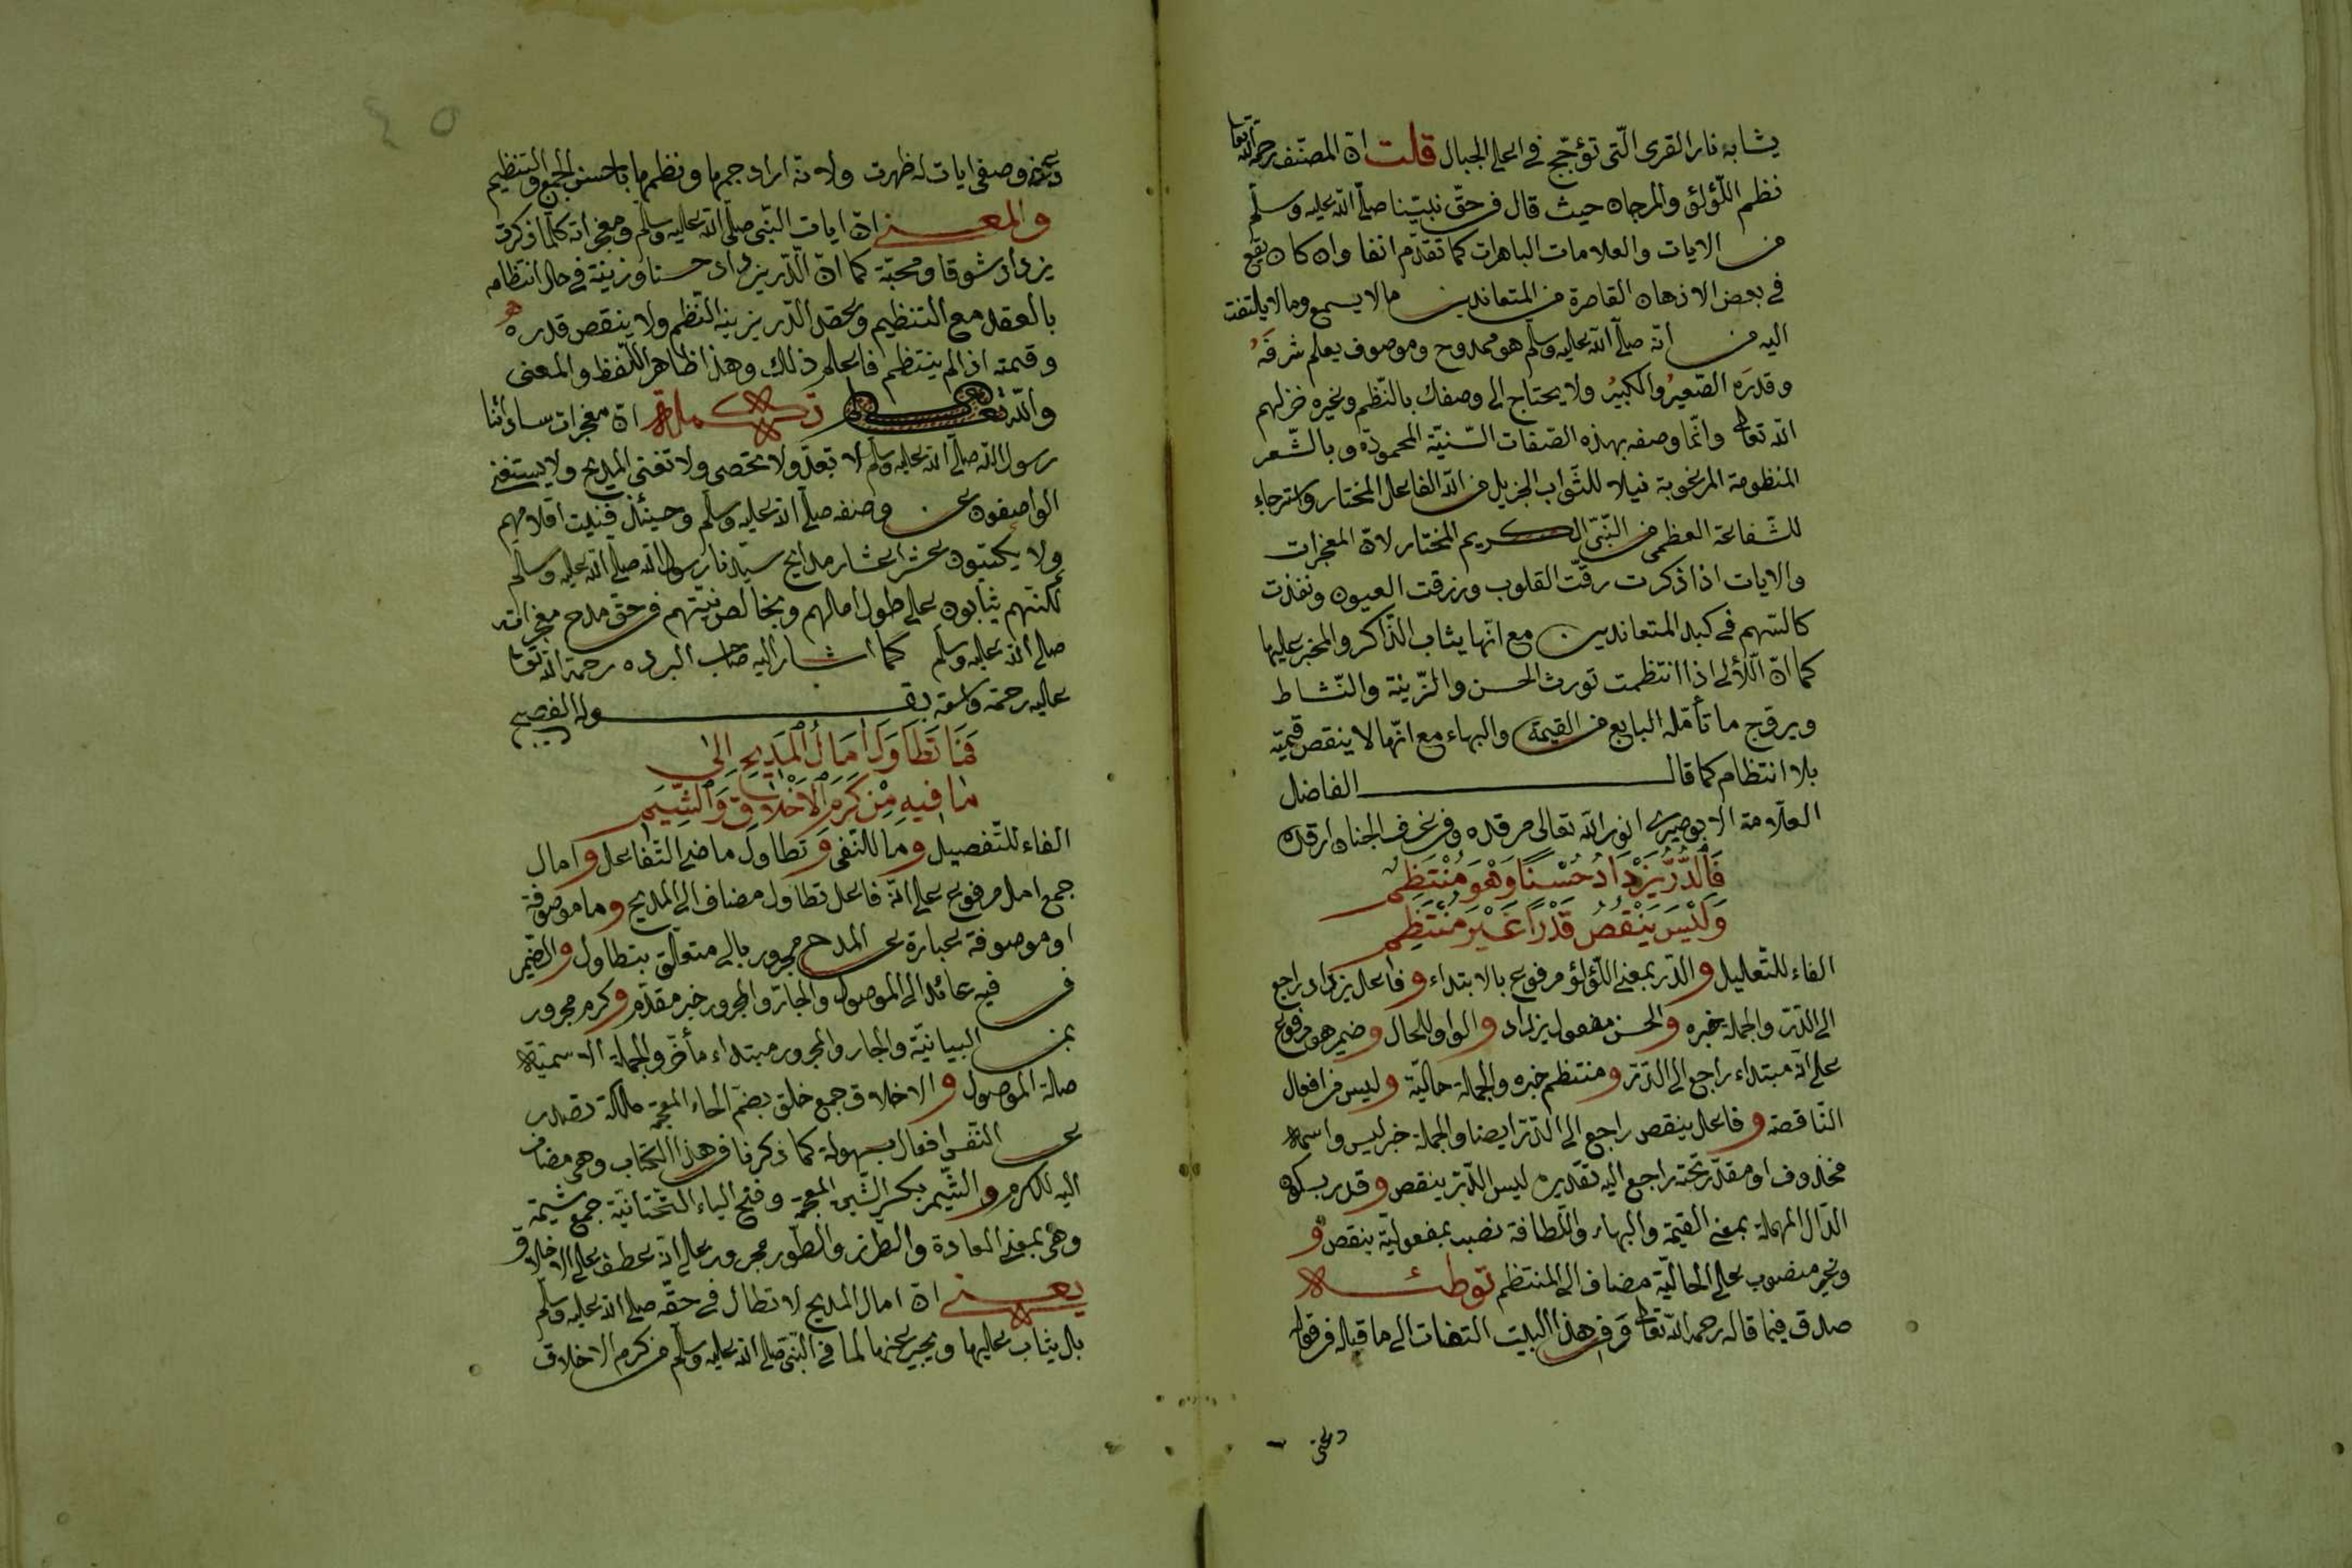 يشابه نار القرى الّتى تؤجّج فى اعلى الجبال قلت انّ المصنّف رحمه الله تعا
نظم اللّؤلؤ والمرجان حيث قال فى حقّ نبيّنا صلّى الله عليه وسلّم
من الايات والعلامات الباهرات كما تقدّم انفا وان كان يقع
فى بعض الاذهان القاصرة من المتعاندين مالا يسمع ومالا يلتفت
اليه من انّه صلّى الله عليه وسلّم هو ممدوح وموصوف يعلم شرفَهُ
وقدرَه الصّغيرُ والكبيرُ ولا يحتاج الى وصفك بالنّظم وغيره خزلهم
الله تعالى وانّما وصفه بهذه الصّفات السّنيّة المحمودة وبالشّعر
المنظومة المرغوبة نيلا للثّواب الجزيل من الله الفاعل المختار واسترجاء
للشّفاعة العظمى من النّبىّ الكريم المختار لانّ المعجزات
والايات اذا ذكرت رقّت القلوب وزرقت العيون ونفذت
كالسّهم فى كبد المتعاندين مع انّها يثاب الذّاكر والمخبر عليها
كما انّ اللّآلى اذا انتظمت تورث الحسن والزّينة والنّشاط
ويروّج ما تأمّله البايع من القيمة والبهاء مع انّها لا ينقص قيمته
بلا انتظام كما قال الفاضل
العلّامة الابوصيرى انور الله تعالى مرقده وفى غرف الجنان ارقده
فَالدُّرُّ يَزْدَادُ حُسْنًا وَهْوَ مُنْتَظِمٌ
وَلَيْسَ يَنْقُصُ قَدْرًا غَيْرَ مُنْتَظِمِ
الفاء للتّعليل والدّر بمعنى اللّؤلؤ مرفوع بالابتداء وفاعل يزداد راجع
الى الدّرّ والجملة خبره والحسن مفعول يزداد والواو للحال وضمير هو مرفوع
على انّه مبتداء راجع الى الدّرّ ومنتظم خبره والجملة حاليّة وليس من افعال
النّاقصة وفاعل ينقص راجع الى الدّرّ ايضا والجملة خبر ليس واسمه
مخذوف او مقدّر تحته راجع اليه تقديره ليس الدّرّ ينقص وقدر بسكون
الدّال المهملة بمعنى القيمة والبهاء واللّطافة نصب بمفعوليّة ينقص و
وغير منصوب على الحاليّة مضاف الى المنتظم توطئه
صدق فيما قاله رحمه الله تعالى وفى هذا البيت التفات الى ما قبله فى قوله
دعنى
دعنى ووصفى ايات له ظهرت ولانّه اراد جمعها ونظمها باحسن الجمع والتنظيم
والمعنى انّ ايات النّبى صلّى الله عليه وسلّم ومعجزاته كلّما ذكرت
يزداد شوقا ومحبّة كما انّ الدّر يزداد حسنا وزينة فى حال انتظام
بالعقد مع التنظيم وبحقد الدّر يزينه النّظم ولا ينقص قدره
وقيمته اذا لم ينتظم فاعلم ذلك وهذا ظاهر اللّفظ والمعنى
والله تعالى تكمله انّ معجزات ساداتنا
رسول الله صلّى الله عليه وسلّم لا تعدّ ولا تحصى ولا تفنى المديح ولا يستغنى
الواصفون عن وصفه صلّى الله عليه وسلّم وحينئذ فنيت اقلامهم
ولا يكتبون عشر اعشار مدايح سيّدنا رسول الله صلّى الله عليه وسلّم
لكنّهم يثابون على طول امالهم وبخالص نيّتهم فى حقّ مدح معجزاته
صلى الله عليه وسلّم كما اشار اليه صاحب البرده رحمة الله تعا
عليه رحمة واسعة بقوله الفصيح
فَمَا تَطَاوَلَ اٰمَالُ الْمَدِيحِ اِلَى
مَا فِيهِ مِنْ كَرَمِ الْاَخْلَاقِ وَالشِّيَمِ
الفاء للتّفصيل وما للنّفى وتطاول ماضى التّفاعل وامال
جمع امل مرفوع على انّه فاعل تطاول مضاف الى المديح وما موصوفة
او موصوفة عبارة عن المدح مجرور بالى متعلّق بتطاول والضّمير
فى فيه عائد الى الموصول والجارّ والمجرور خبر مقدّم وكرم مجرور
بمن البيانيّة والجار والمجرور مبتداء مأخّر والجملة الاسميّة
صلة الموصول والاخلاق جمع خلق بضمّ الخاء المعجمة ملكة تصدر
عن النّفس افعال بسهولة كما ذكرنا فى هذا الكتاب وهى مضاف
اليه للكرم والشّيم بكسر الشّين المعجمة وفتح الياء التّحتانيّة جمع شيمة
وهى بمعنى العادة والطّرز والطّور مجرور على انّه عطف على الاخلاق
يعنى انّ امال المديح لا تطال فى حقّه صلى الله عليه وسلّم
بل يثاب عليها ويجير عنها لما فى النّبىّ صلى الله عليه وسلّم من كرم الاخلاق